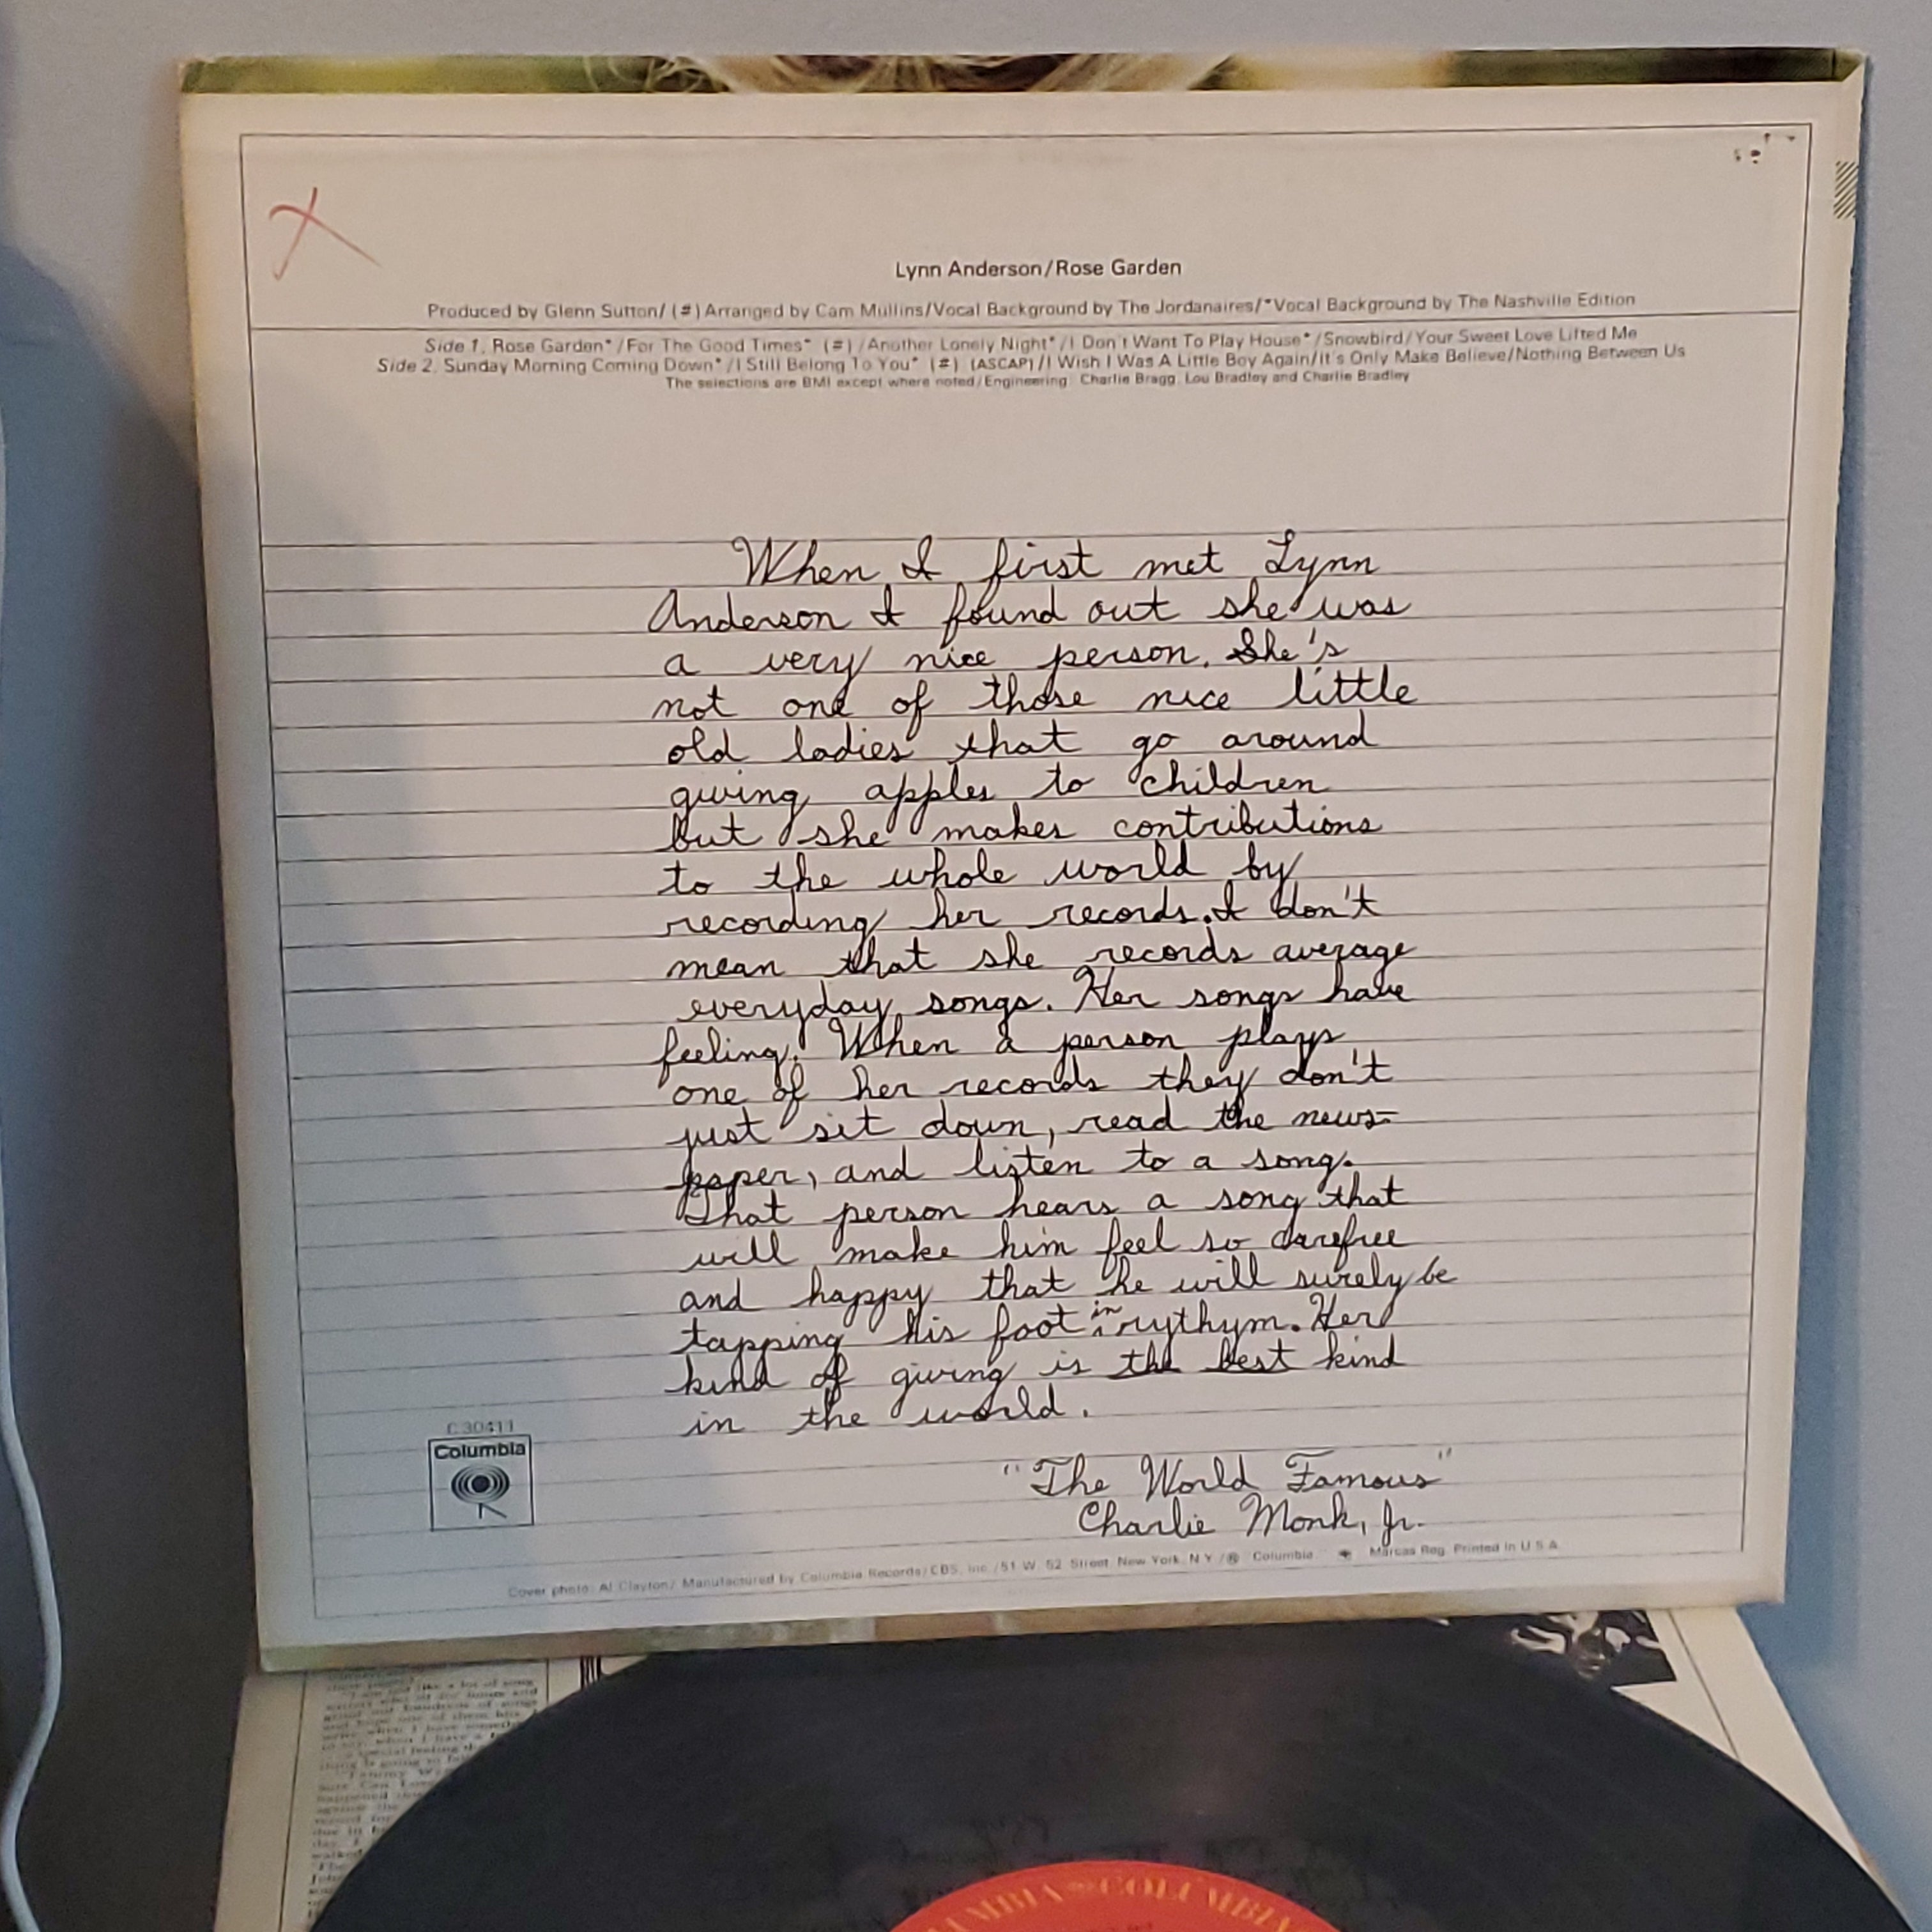 Lynn Anderson/Rose Garden
Produced by Glenn Sutton/ (#) Arranged by Cam Mullins/Vocal Background by The Jordanaires/*Vocal Background by The Nashville Edition
Side 1. Rose Garden*/For The Good Times* (#)/Another Lonely Night*/I Don't Want To Play House*/Snowbird/Your Sweet Love Lifted Me
Side 2. Sunday Morning Coming Down*/I Still Belong To You* (#) (ASCAP)/I Wish I Was A Little Boy Again/It's Only Make Believe/Nothing Between Us
The selections are BMI except where noted/Engineering: Charlie Bragg, Lou Bradley and Charlie Bradley
When I first met Lynn
Anderson I found out she was
a very nice person. She's
not one of those nice little
old ladies that go around
giving apples to children
but she makes contributions
to the whole world by
recording her records. I don't
mean that she records average
everyday songs. Her songs have
feeling. When a person plays
one of her records they don't
just sit down, read the news-
paper, and listen to a song.
That person hears a song that
will make him feel so carefree
and happy that he will surely be
tapping his foot in rythym. Her
kind of giving is the best kind
in the world.
"The World Famous"
Charlie Monk, Jr.
C 30411
Columbia
Cover photo: Al Clayton/ Manufactured by Columbia Records/CBS, Inc./51 W. 52 Street, New York, N.Y./® Columbia, Marcas Reg. Printed in U.S.A.
COLUMBIA